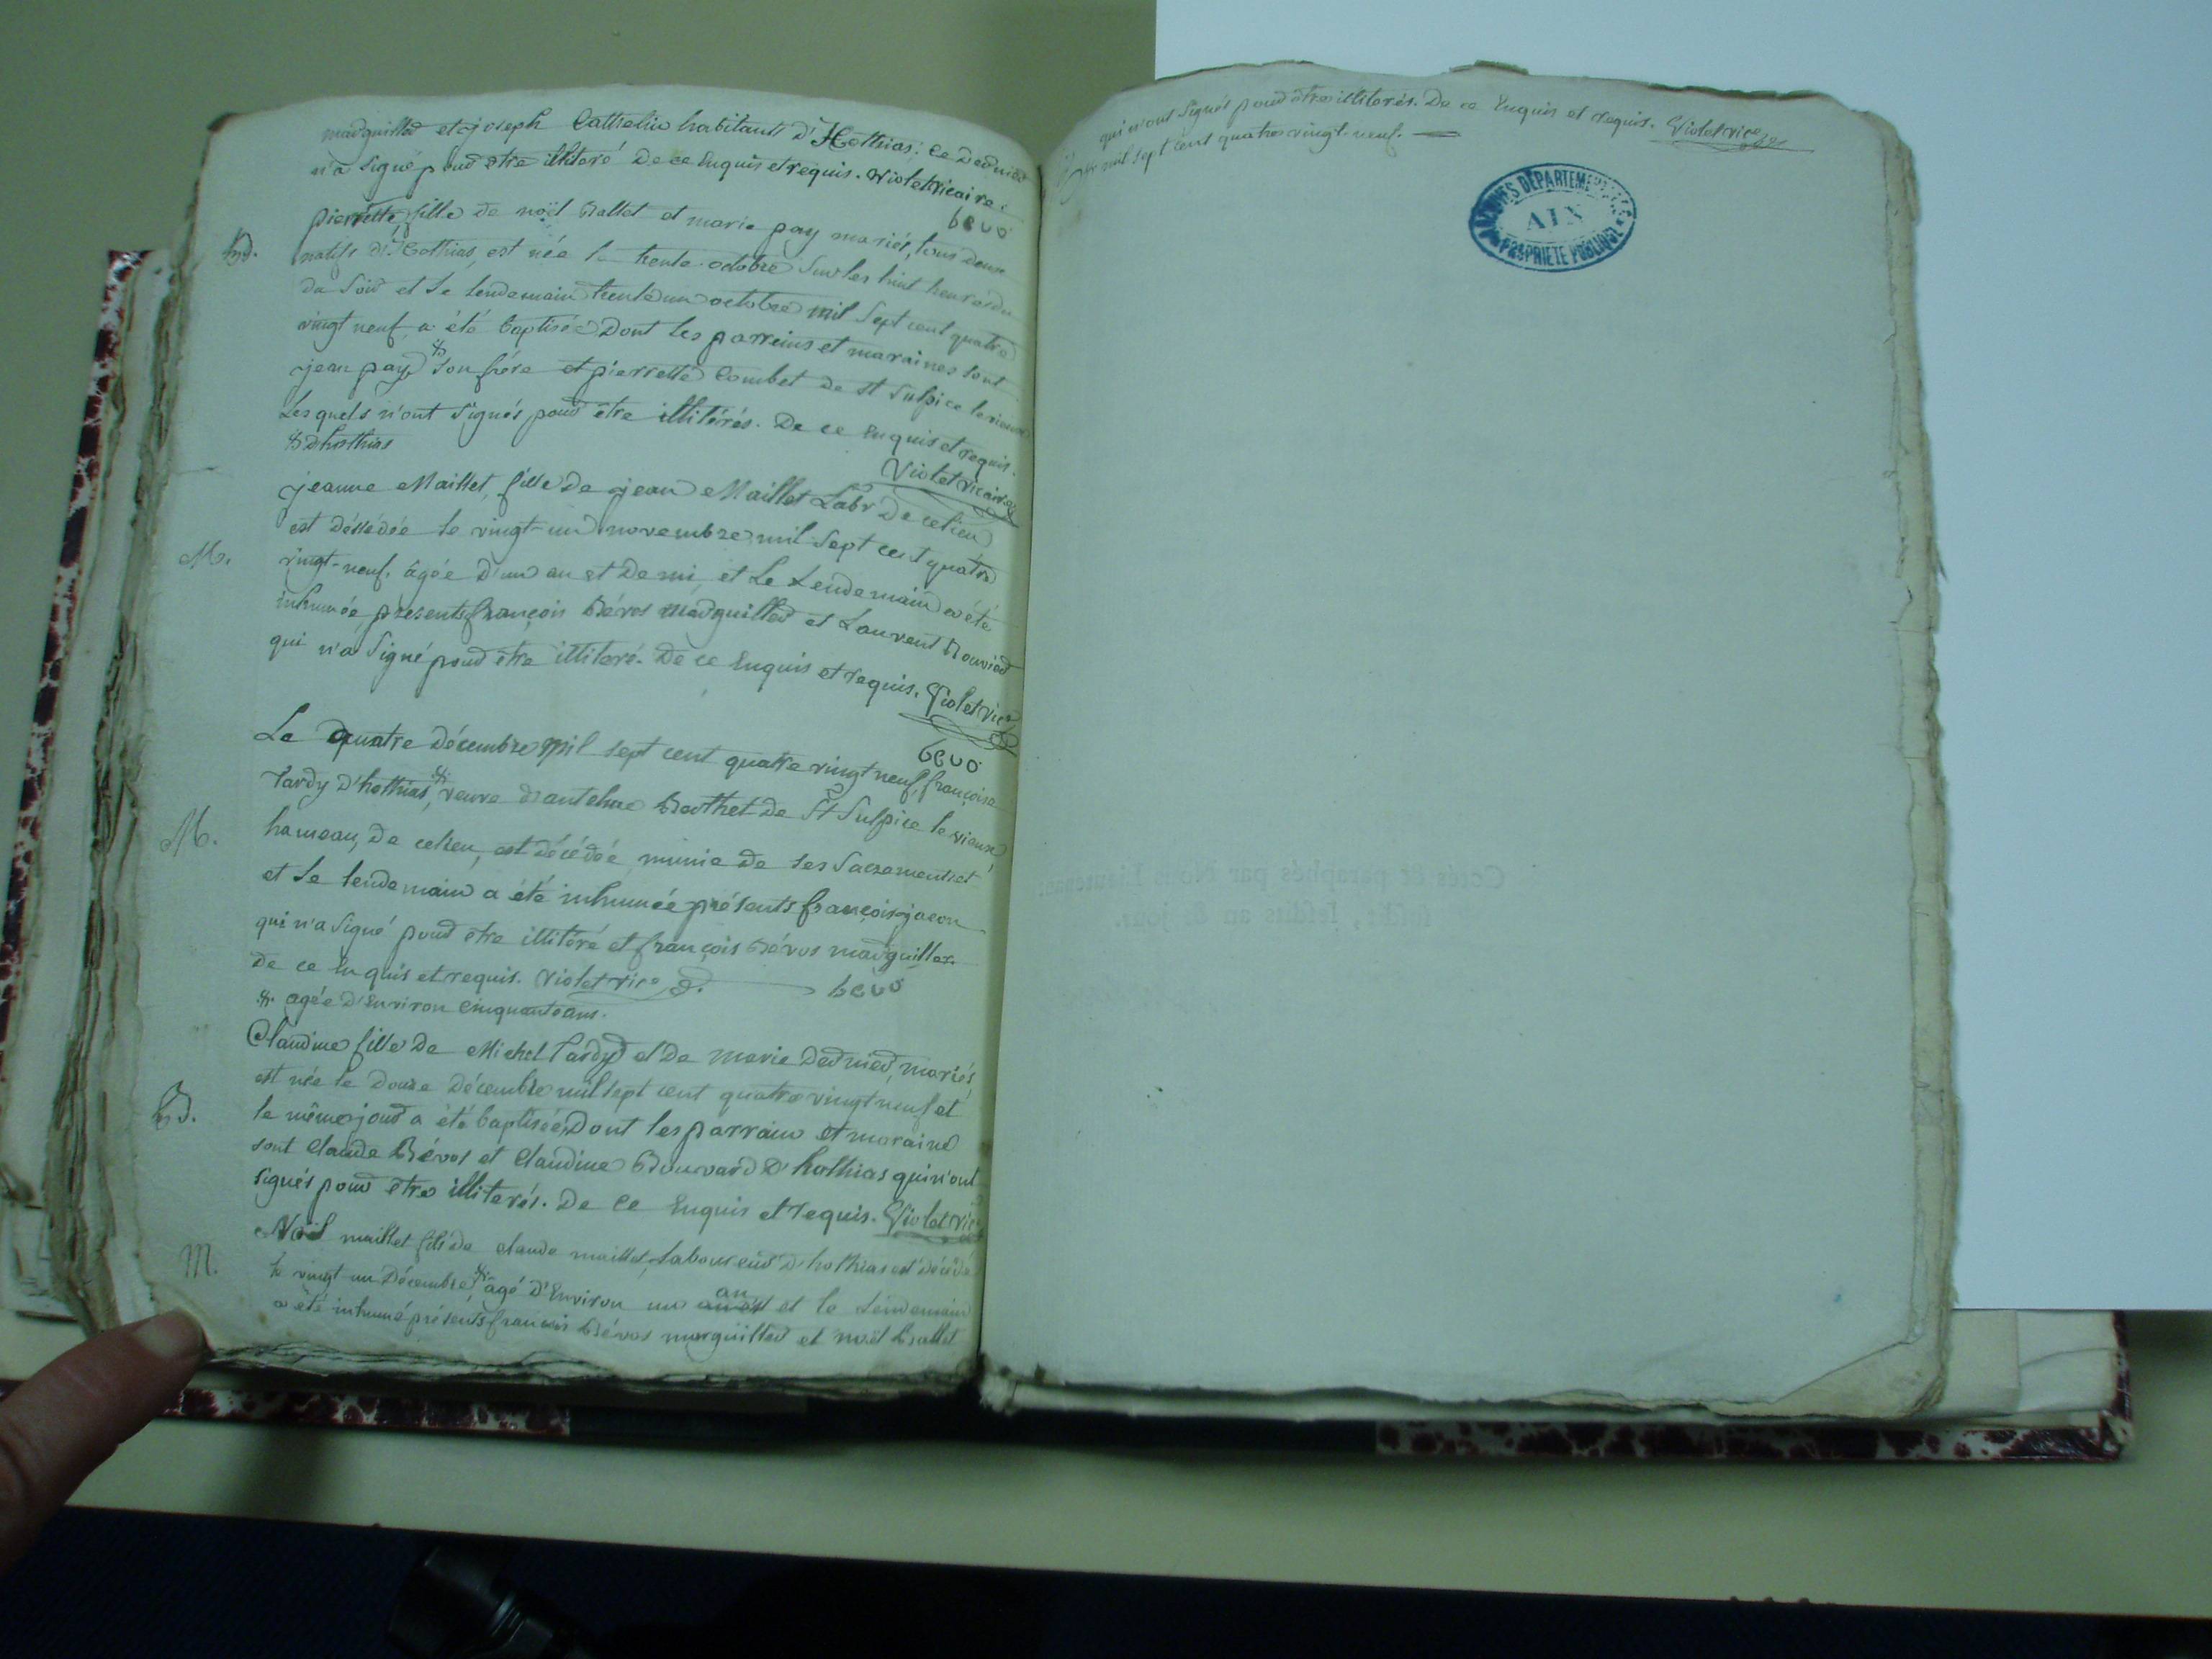 marguiller et joseph Cathelin habitants d'Hothias: ce dernier
n'a signé pour être illiteré de ce Enquis et requis. Violet vicaire.
bevo
B.
pierrette, fille de noël Ballet et marie pay mariés, tous deux
natifs d'Hothias, est née le trente octobre sur les huit heures du
du soir et le lendemain trente un octobre mil sept cent quatre
vingt neuf a été baptisée dont les parreins et maraines sont
jean pay, & son frére et pierrette Combet de st Sulpice le vieux
Lesquels n'ont signés pour être illitérés. De ce Enquis et requis.
& d'hothias
Violet vicaire
M.
jeanne Maillet, fille de jean Maillet Labr de ce lieu
est décédée le vingt-un novembre mil sept cent quatre
vingt-neuf. âgée d'un an et demi, et Le Lendemain a été
inhumée, présents françois Bévos marguiller et Laurent Bouvier
qui n'a signé pour être illiteré. De ce Enquis et requis. Violet vice
bevo
M.
Le quatre décembre mil sept cent quatre vingt neuf, françoise
Tardy d'hothias, & veuve d'antelme Berthet de St Sulpice le vieux
hameau, de ce lieu, est décédée munie de ses sacrements et
et le lendemain a été inhumée présents françois jacon
qui n'a signé pour être illitéré et françois Bévos marguiller
de ce Enquis et requis. Violet vice
bevo
& agée d'Environ Cinquante ans.
B.
Claudine fille de Michel Tardy et de marie Dernier, mariés,
est née le douze décembre mil sept cent quatre vingt neuf et
le même jour a été baptisée, dont les parrain et maraine
sont Claude Bévos et Claudine Bouvard d'hothias qui n'ont
signés pour être illiterés. De ce Enquis et requis. Violet vice
M.
Noël maillet fils de claude maillet, laboureur d'hothias est décédé
le vingt-un décembre, & agé d'Environ un an et le lendemain
a été inhumé présents françois Bévos marguiller et noël Ballet
qui n'ont signés pour être illiterés. De ce Enquis et requis. Violet vice
& mil sept cent quatre vingt-neuf.
ARCHIVES DÉPARTEMENTALES
AIN
PROPRIÉTÉ PUBLIQUE